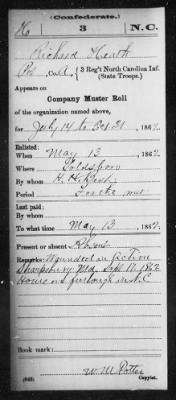 (Confederate.)
H 3 N.C.
Richard Heath
Pvt, Co. A, 3 Reg't North Carolina Inf.
(State Troops.)
Appears on
Company Muster Roll
of the organization named above,
for July 14 to Oct 31, 1862.
Enlisted:
When May 13, 1862.
Where Goldsboro
By whom
Period
Last paid:
By whom
To what time May 13, 1862.
Present or absent Absent
Remarks: Wounded in action
Sharpsburg Md, Sept 17, 1862
Home on furlough in N.C
Book mark:
W. M. Potter
Copyist.